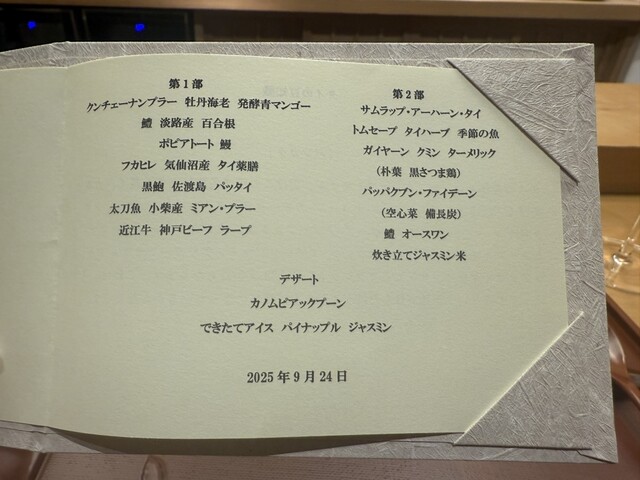 第1部
クンチェーナンプラー 牡丹海老 発酵青マンゴー
鱧 淡路産 百合根
ポピアトート 鰻
フカヒレ 気仙沼産 タイ薬膳
黒鮑 佐渡島 パッタイ
太刀魚 小柴産 ミアン・プラー
近江牛 神戸ビーフ ラープ
第2部
サムラップ・アーハーン・タイ
トムセープ タイハーブ 季節の魚
ガイヤーン クミン ターメリック
(朴葉 黒さつま鶏)
パッパクブン・ファイデーン
(空心菜 備長炭)
鱧 オースワン
炊き立てジャスミン米
デザート
カノムピアックプーン
できたてアイス パイナップル ジャスミン
2025年9月24日